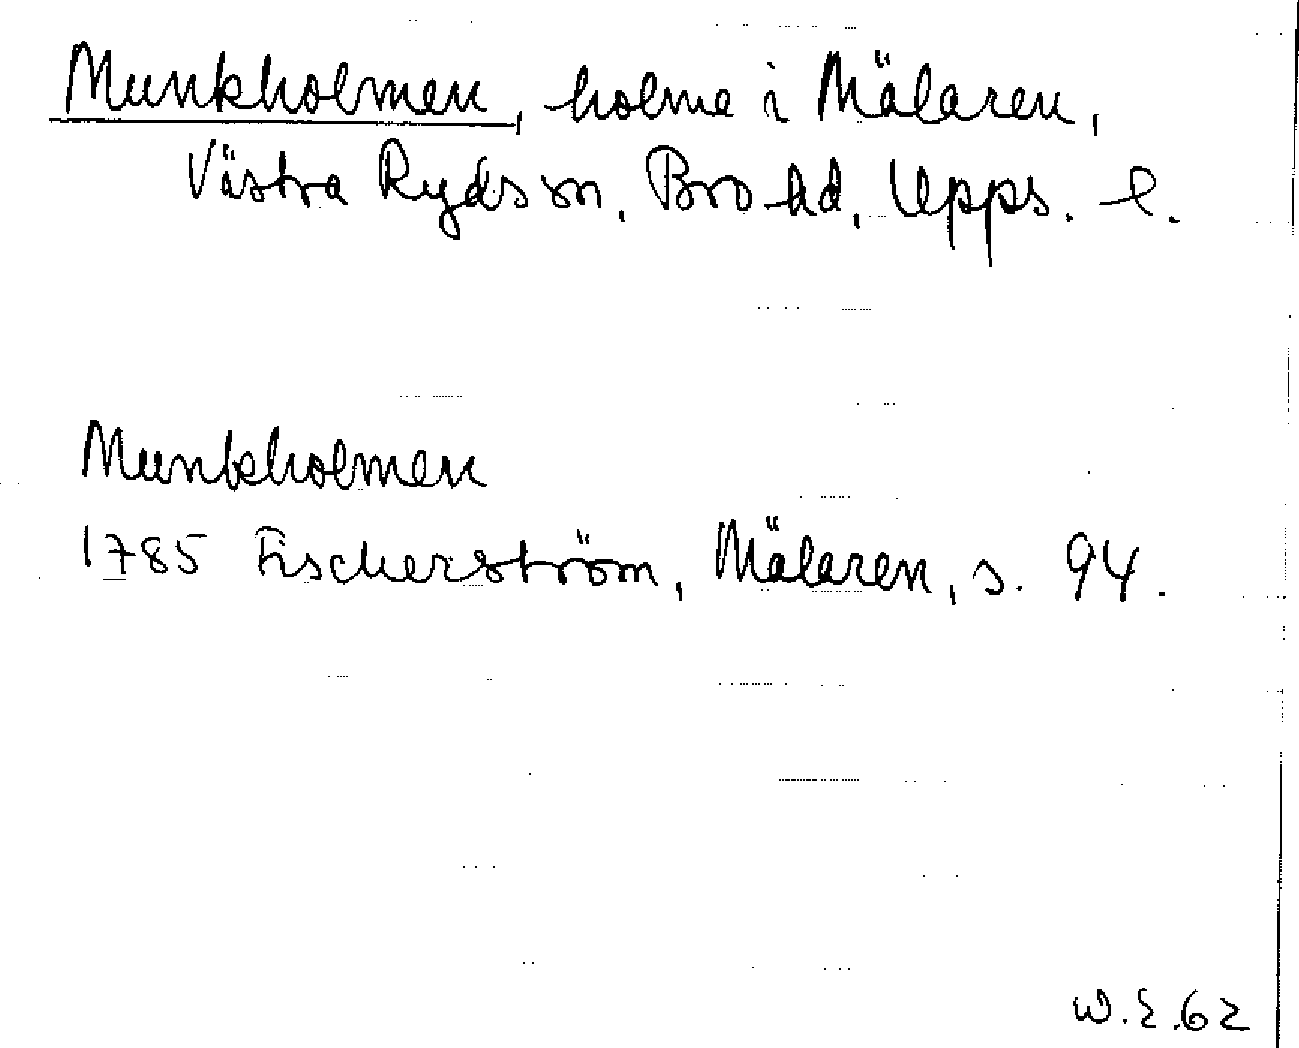 Munkholmen, holme i Mälaren,
Västra Ryds sn, Bro hd, Upps. l.
Munkholmen
1785 Fischerström, Mälaren, s. 94.
W.E.62